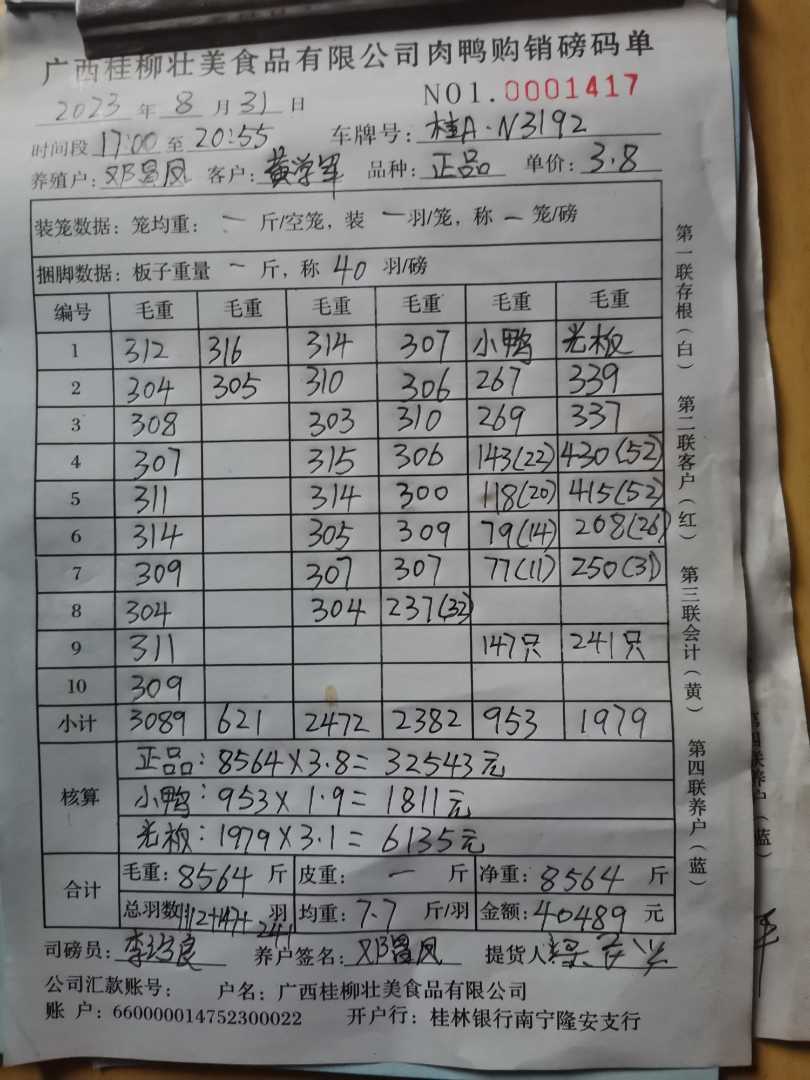 广西桂柳壮美食品有限公司肉鸭购销磅码单
2023 年 8 月 31 日 NO1.0001417
时间段 17:00 至 20:55 车牌号: 桂A·N3192
养殖户: 邓昌凤 客户: 黄学军 品种: 正品 单价: 3.8
装笼数据: 笼均重: 一 斤/空笼, 装 一 羽/笼, 称 一 笼/磅
捆脚数据: 板子重量 一 斤, 称 40 羽/磅
编号 毛重 毛重 毛重 毛重 毛重 毛重
1 312 316 314 307 小鸭 光板
2 304 305 310 306 267 339
3 308 303 310 269 337
4 307 315 306 143(22) 430(52)
5 311 314 300 118(20) 415(52)
6 314 305 309 79(14) 208(26)
7 309 307 307 77(11) 250(31)
8 304 304 237(32)
9 311 147只 241只
10 309
小计 3089 621 2472 2382 953 1979
核算
正品: 8564×3.8= 32543元
小鸭: 953× 1.9= 1811元
光板: 1979×3.1= 6135元
合计
毛重: 8564 斤 皮重: 一 斤 净重: 8564 斤
总羽数 1112+147+241 羽 均重: 7.7 斤/羽 金额: 40489 元
司磅员: 养户签名: 邓昌凤 提货人
公司汇款账号: 户名: 广西桂柳壮美食品有限公司
账 户: 660000014752300022 开户行: 桂林银行南宁隆安支行
第一联存根(白) 第二联客户(红) 第三联会计(黄) 第四联养户(蓝)
联养户(蓝)